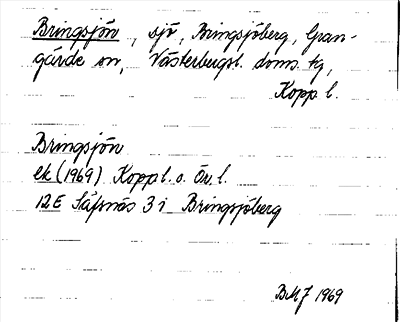 Bringsjön, sjö, Bringsjöberg, Gran-
gärde sn, Västerbergsl. doms. tg,
Kopp. l.
Bringsjön
ek (1969) Koppl. o. Ör. l.
12E Säfsnäs 3 i Bringsjöberg
BMJ 1969